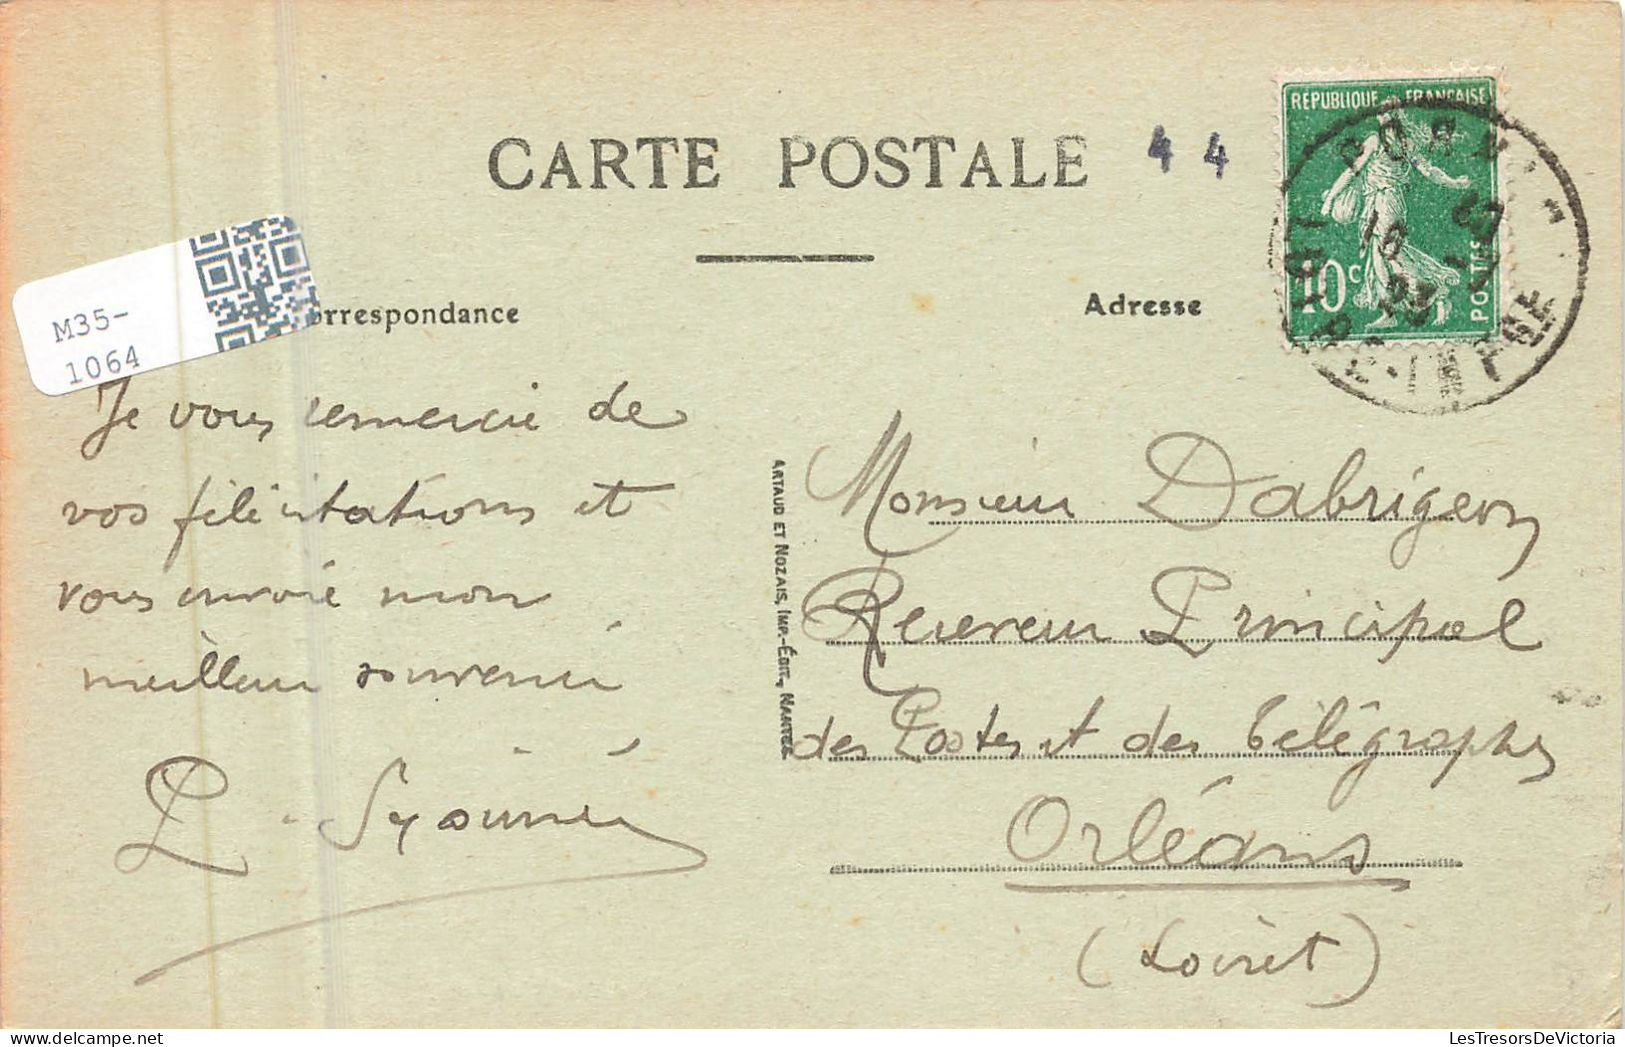 CARTE POSTALE
44
REPUBLIQUE FRANÇAISE
10c
POSTES
M35-
1064
orrespondance
Adresse
Je vous remercie de
vos félicitations et
vous envoie mon
meilleur souvenir
ARTAUD ET NOZAIS, IMP.-ÉDIT., NANTES
Monsieur Dabrigeon
Receveur Principal
des Postes et des Télégraphes
Orléans
(Loiret)
LesTresorsDeVictoria